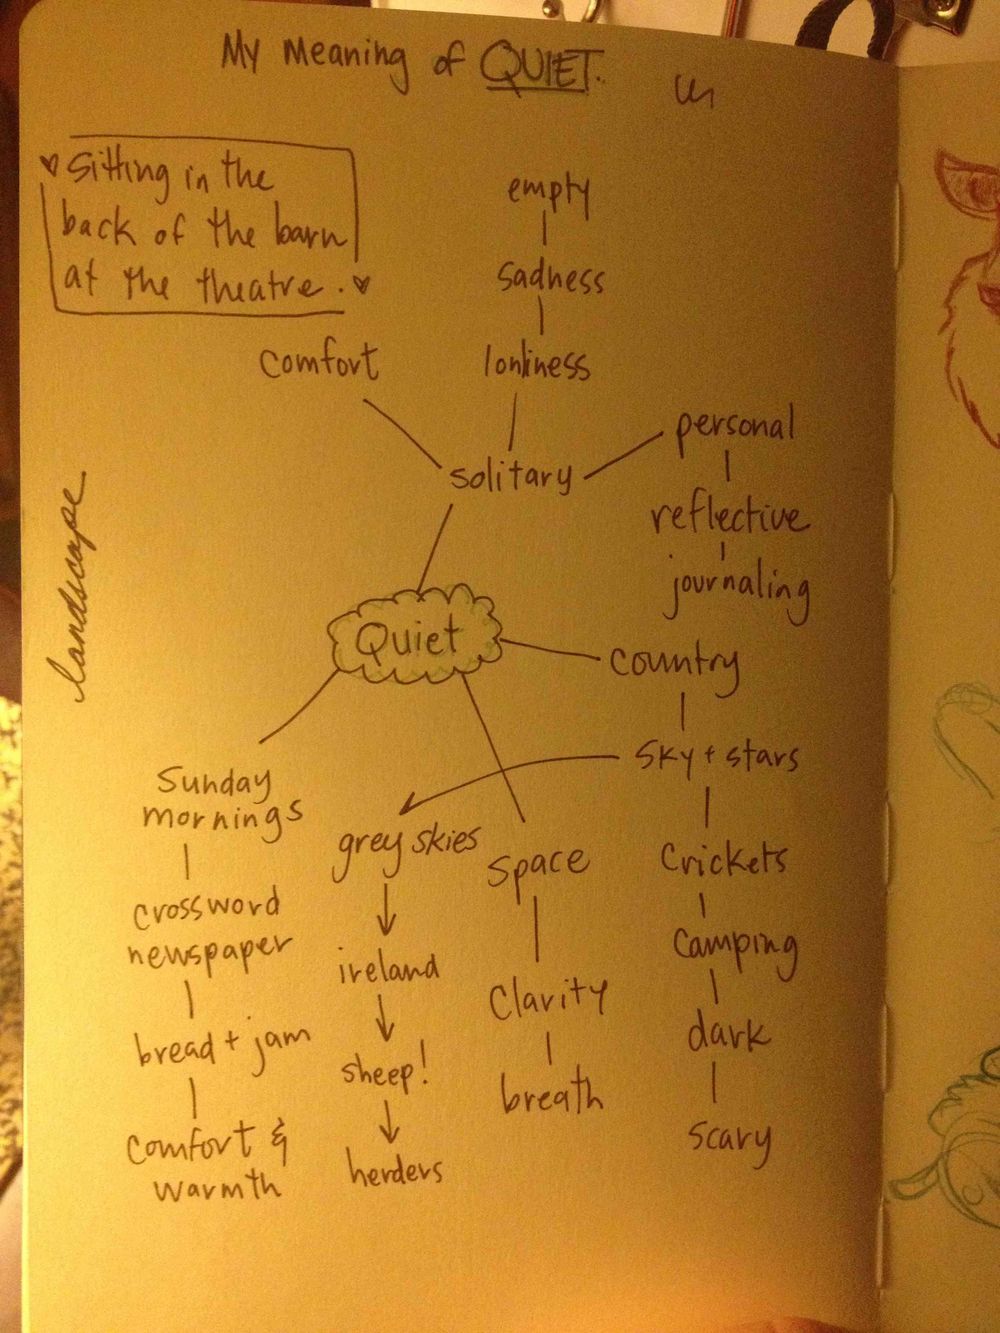 My Meaning of QUIET.
♥ Sitting in the
back of the barn
at the theatre. ♥
empty
sadness
lonliness
comfort
solitary
personal
reflective
journaling
landscape
Quiet
country
sky + stars
crickets
camping
dark
scary
Sunday
mornings
crossword
newspaper
bread + jam
comfort &
warmth
grey skies
ireland
sheep!
herders
space
clarity
breath